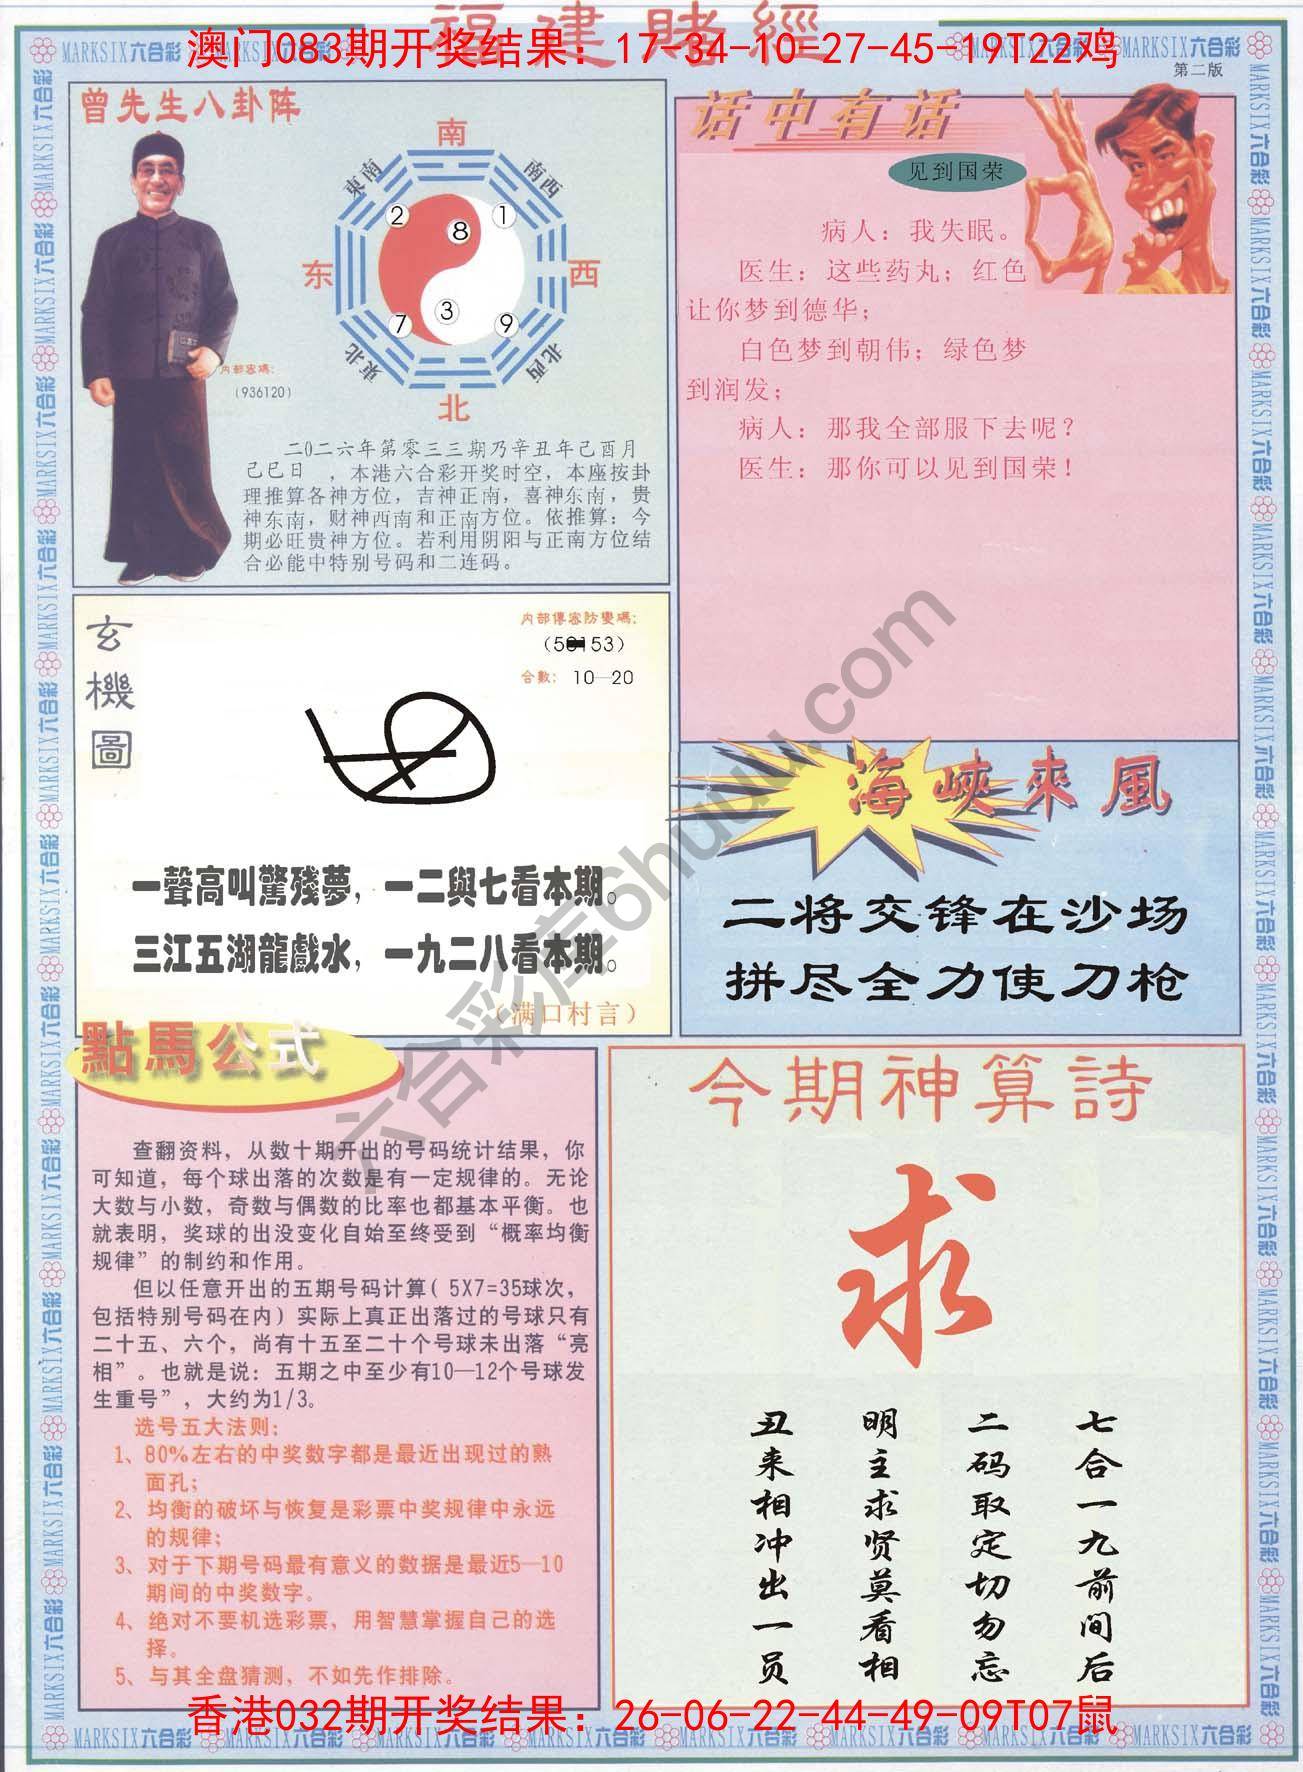 福建賭經
澳门083期开奖结果：17-34-10-27-45-19T22鸡
MARKSIX六合彩
第二版
曾先生八卦阵
南
東南
南西
2
1
8
东
西
3
7
9
東北
北西
北
内部密碼：
(936120)
二0二六年第零三三期乃辛丑年己酉月
己巳日 ，本港六合彩开奖时空，本座按卦
理推算各神方位，吉神正南，喜神东南，贵
神东南，财神西南和正南方位。依推算：今
期必旺贵神方位。若利用阴阳与正南方位结
合必能中特别号码和二连码。
话中有话
见到国荣
病人：我失眠。
医生：这些药丸；红色
让你梦到德华；
白色梦到朝伟；绿色梦
到润发；
病人：那我全部服下去呢？
医生：那你可以见到国荣！
玄機圖
内部傳密防變碼：
合數： 10—20
一聲高叫驚殘夢，一二與七看本期。
三江五湖龍戲水，一九二八看本期。
（满口村言）
海峽來風
二将交锋在沙场
拼尽全力使刀枪
點馬公式
查翻资料，从数十期开出的号码统计结果，你
可知道，每个球出落的次数是有一定规律的。无论
大数与小数，奇数与偶数的比率也都基本平衡。也
就表明，奖球的出没变化自始至终受到“概率均衡
规律”的制约和作用。
但以任意开出的五期号码计算（5X7=35球次，
包括特别号码在内）实际上真正出落过的号球只有
二十五、六个，尚有十五至二十个号球未出落“亮
相”。也就是说：五期之中至少有10—12个号球发
生重号”，大约为1/3。
选号五大法则：
1、80%左右的中奖数字都是最近出现过的熟
面孔；
2、均衡的破坏与恢复是彩票中奖规律中永远
的规律；
3、对于下期号码最有意义的数据是最近5—10
期间的中奖数字。
4、绝对不要机选彩票，用智慧掌握自己的选
择。
5、与其全盘猜测，不如先作排除。
今期神算詩
求
七合一九前间后
二码取定切勿忘
明主求贤莫看相
丑来相冲出一员
六合彩库6huuu.com
香港032期开奖结果：26-06-22-44-49-09T07鼠
MARKSIX六合彩